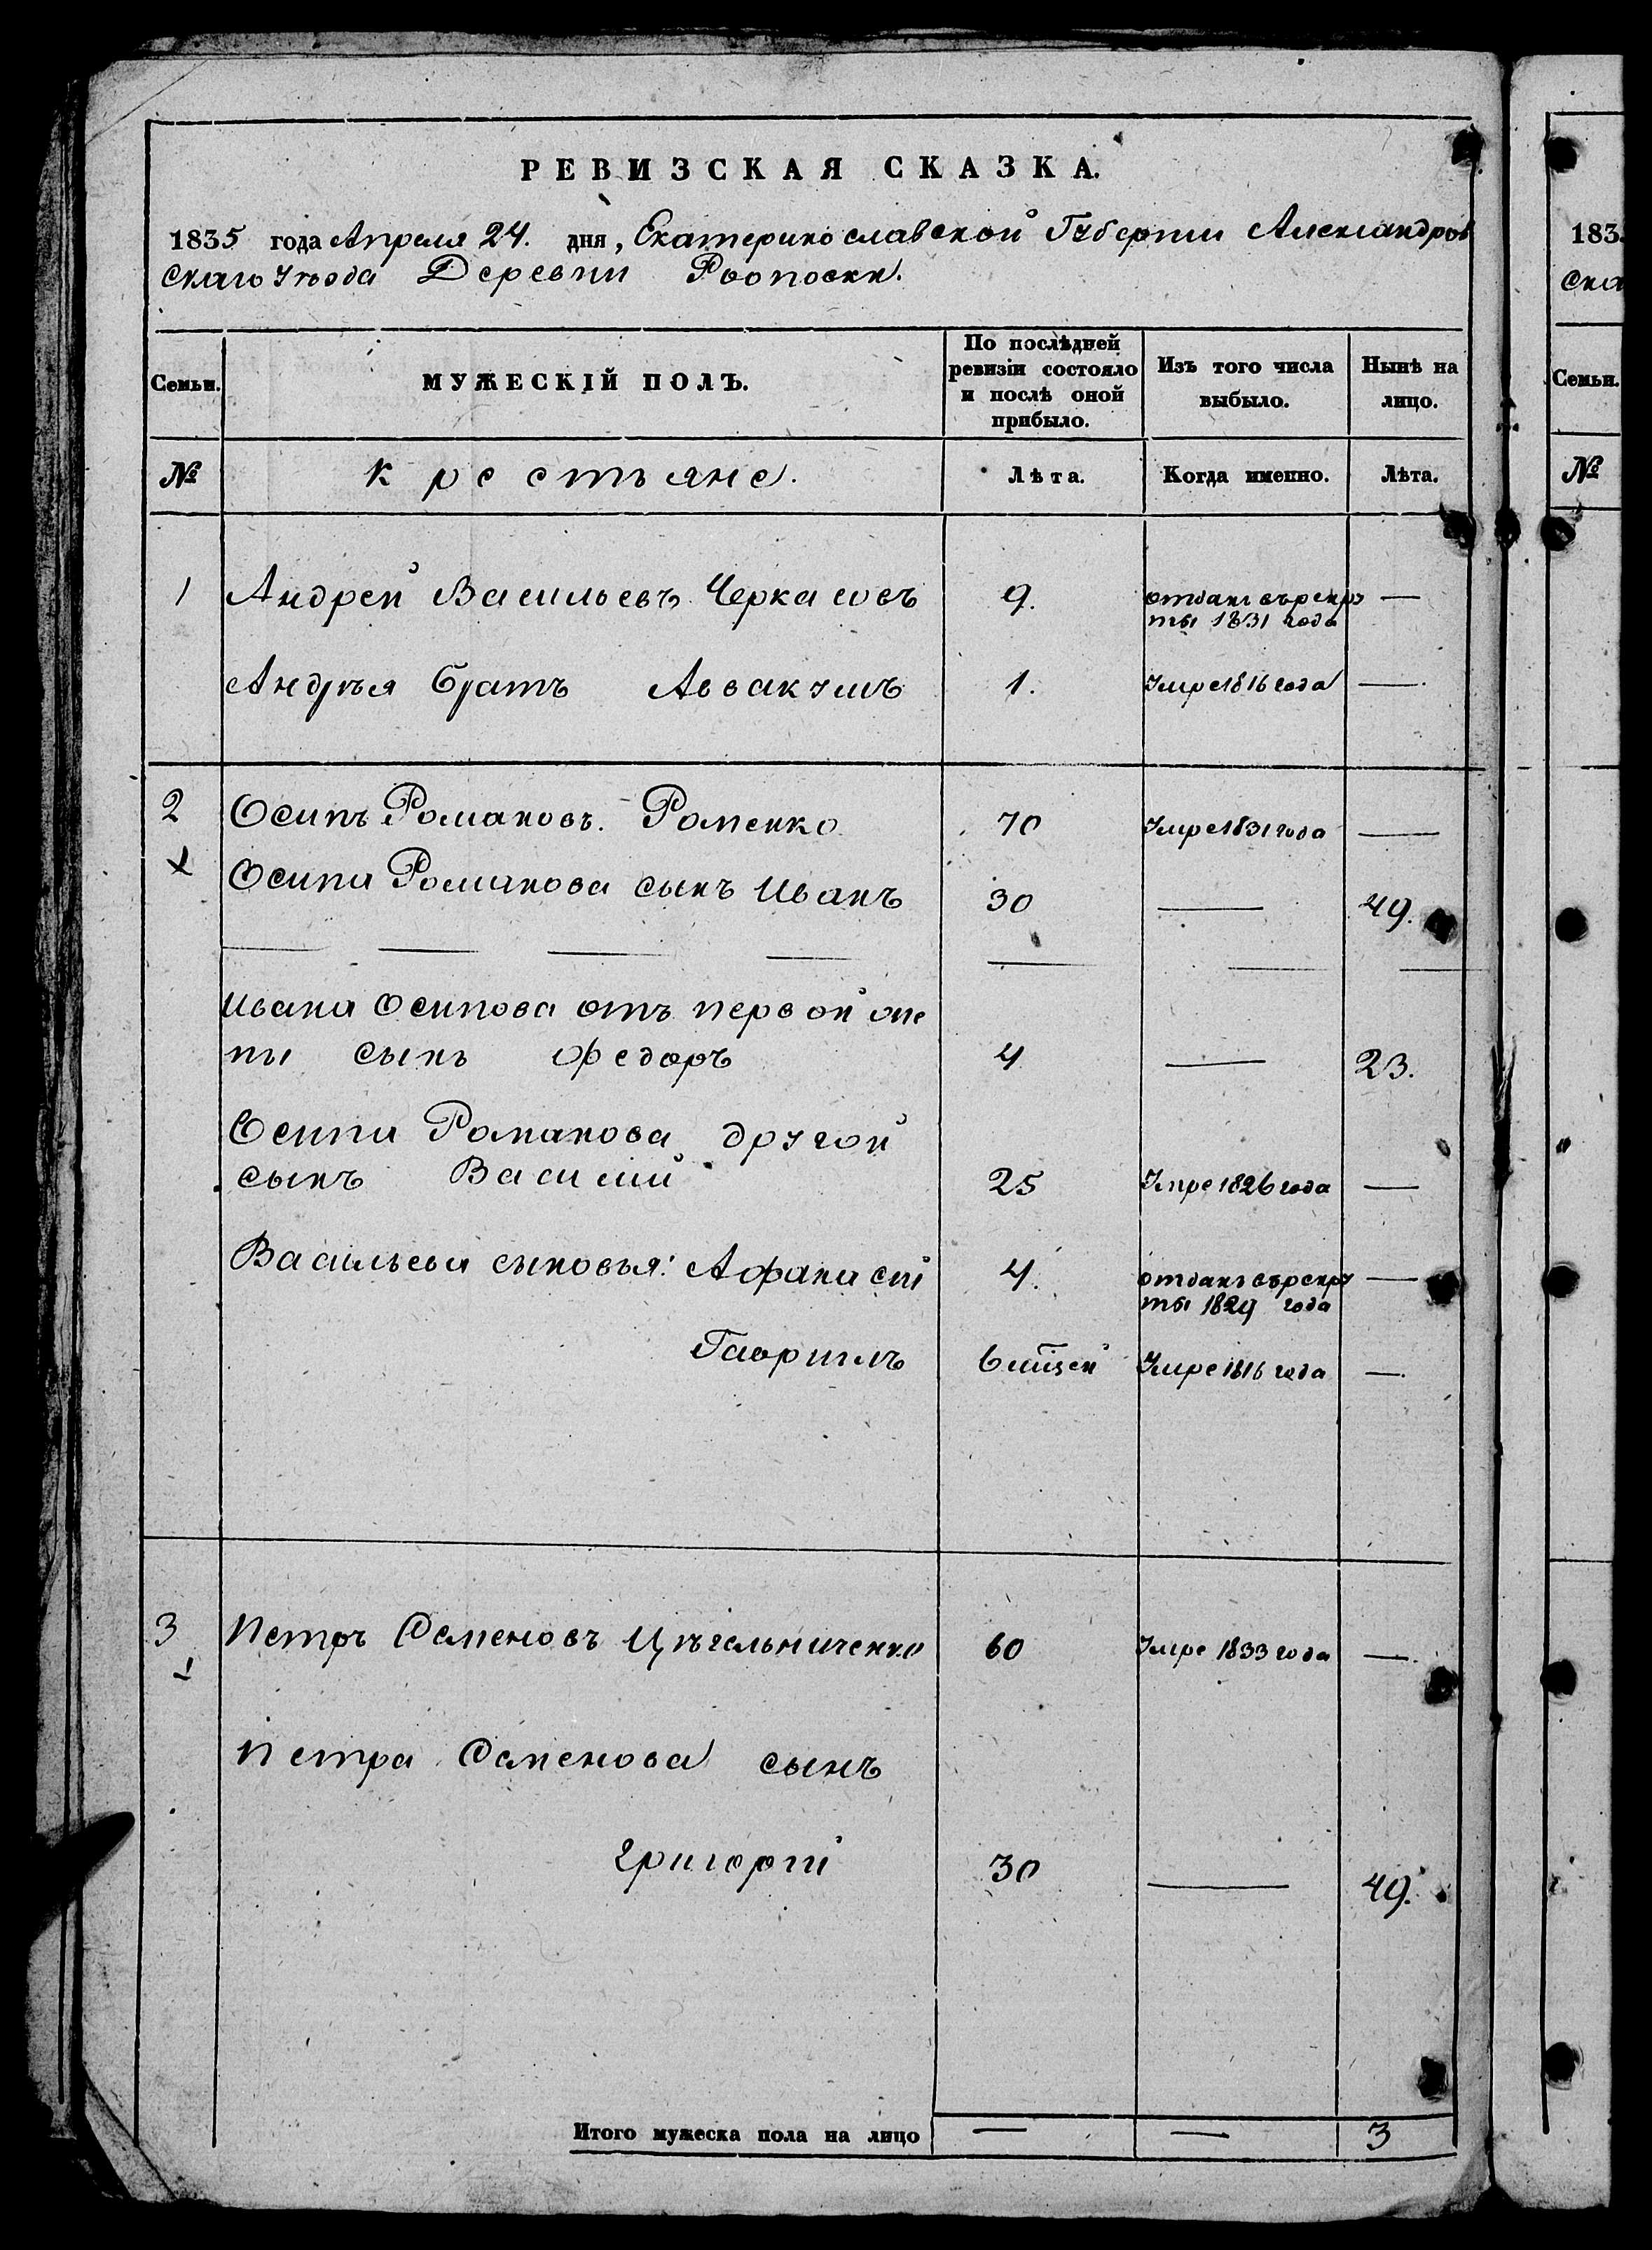 РЕВИЗСКАЯ СКАЗКА.
1835 года Апреля 24. дня, Екатеринославской Губернiи Александров
скаго Уѣзда Деревни
Семьи. МУЖЕСКІЙ ПОЛЪ. По послѣдней ревизіи состояло и послѣ оной прибыло. Изъ того числа выбыло. Нынѣ на лицо.
№ крестьяне. Лѣта. Когда именно. Лѣта.
1 Андрей Васильевъ Черкасовъ 9. отданъ въ рекру —
ты 1831 года
Андрѣя братъ Аввакумъ 1. Умре 1816 года —.
2 Осипъ Романовъ. Роменко 70 Умре 1831 года —
Осипа Романова сынъ Иванъ 30 — 49.
Ивана Осипова отъ первой же
ны сынъ Федоръ 4 — 23.
Осипа Романова другой
сынъ Василiй 25 Умре 1826 года —
Васильева сыновья: Афанасiй 4. отданъ въ рекру —
ты 1829 года
Гаврiилъ 6 мѣсей Умре 1816 года —.
3 Петръ Семеновъ Цыгельниченко 60 Умре 1833 года —.
1
Петра Семенова сынъ
Григорiй 30 — 49.
Итого мужеска пола на лицо — — 3
183
ска
Семьи.
№